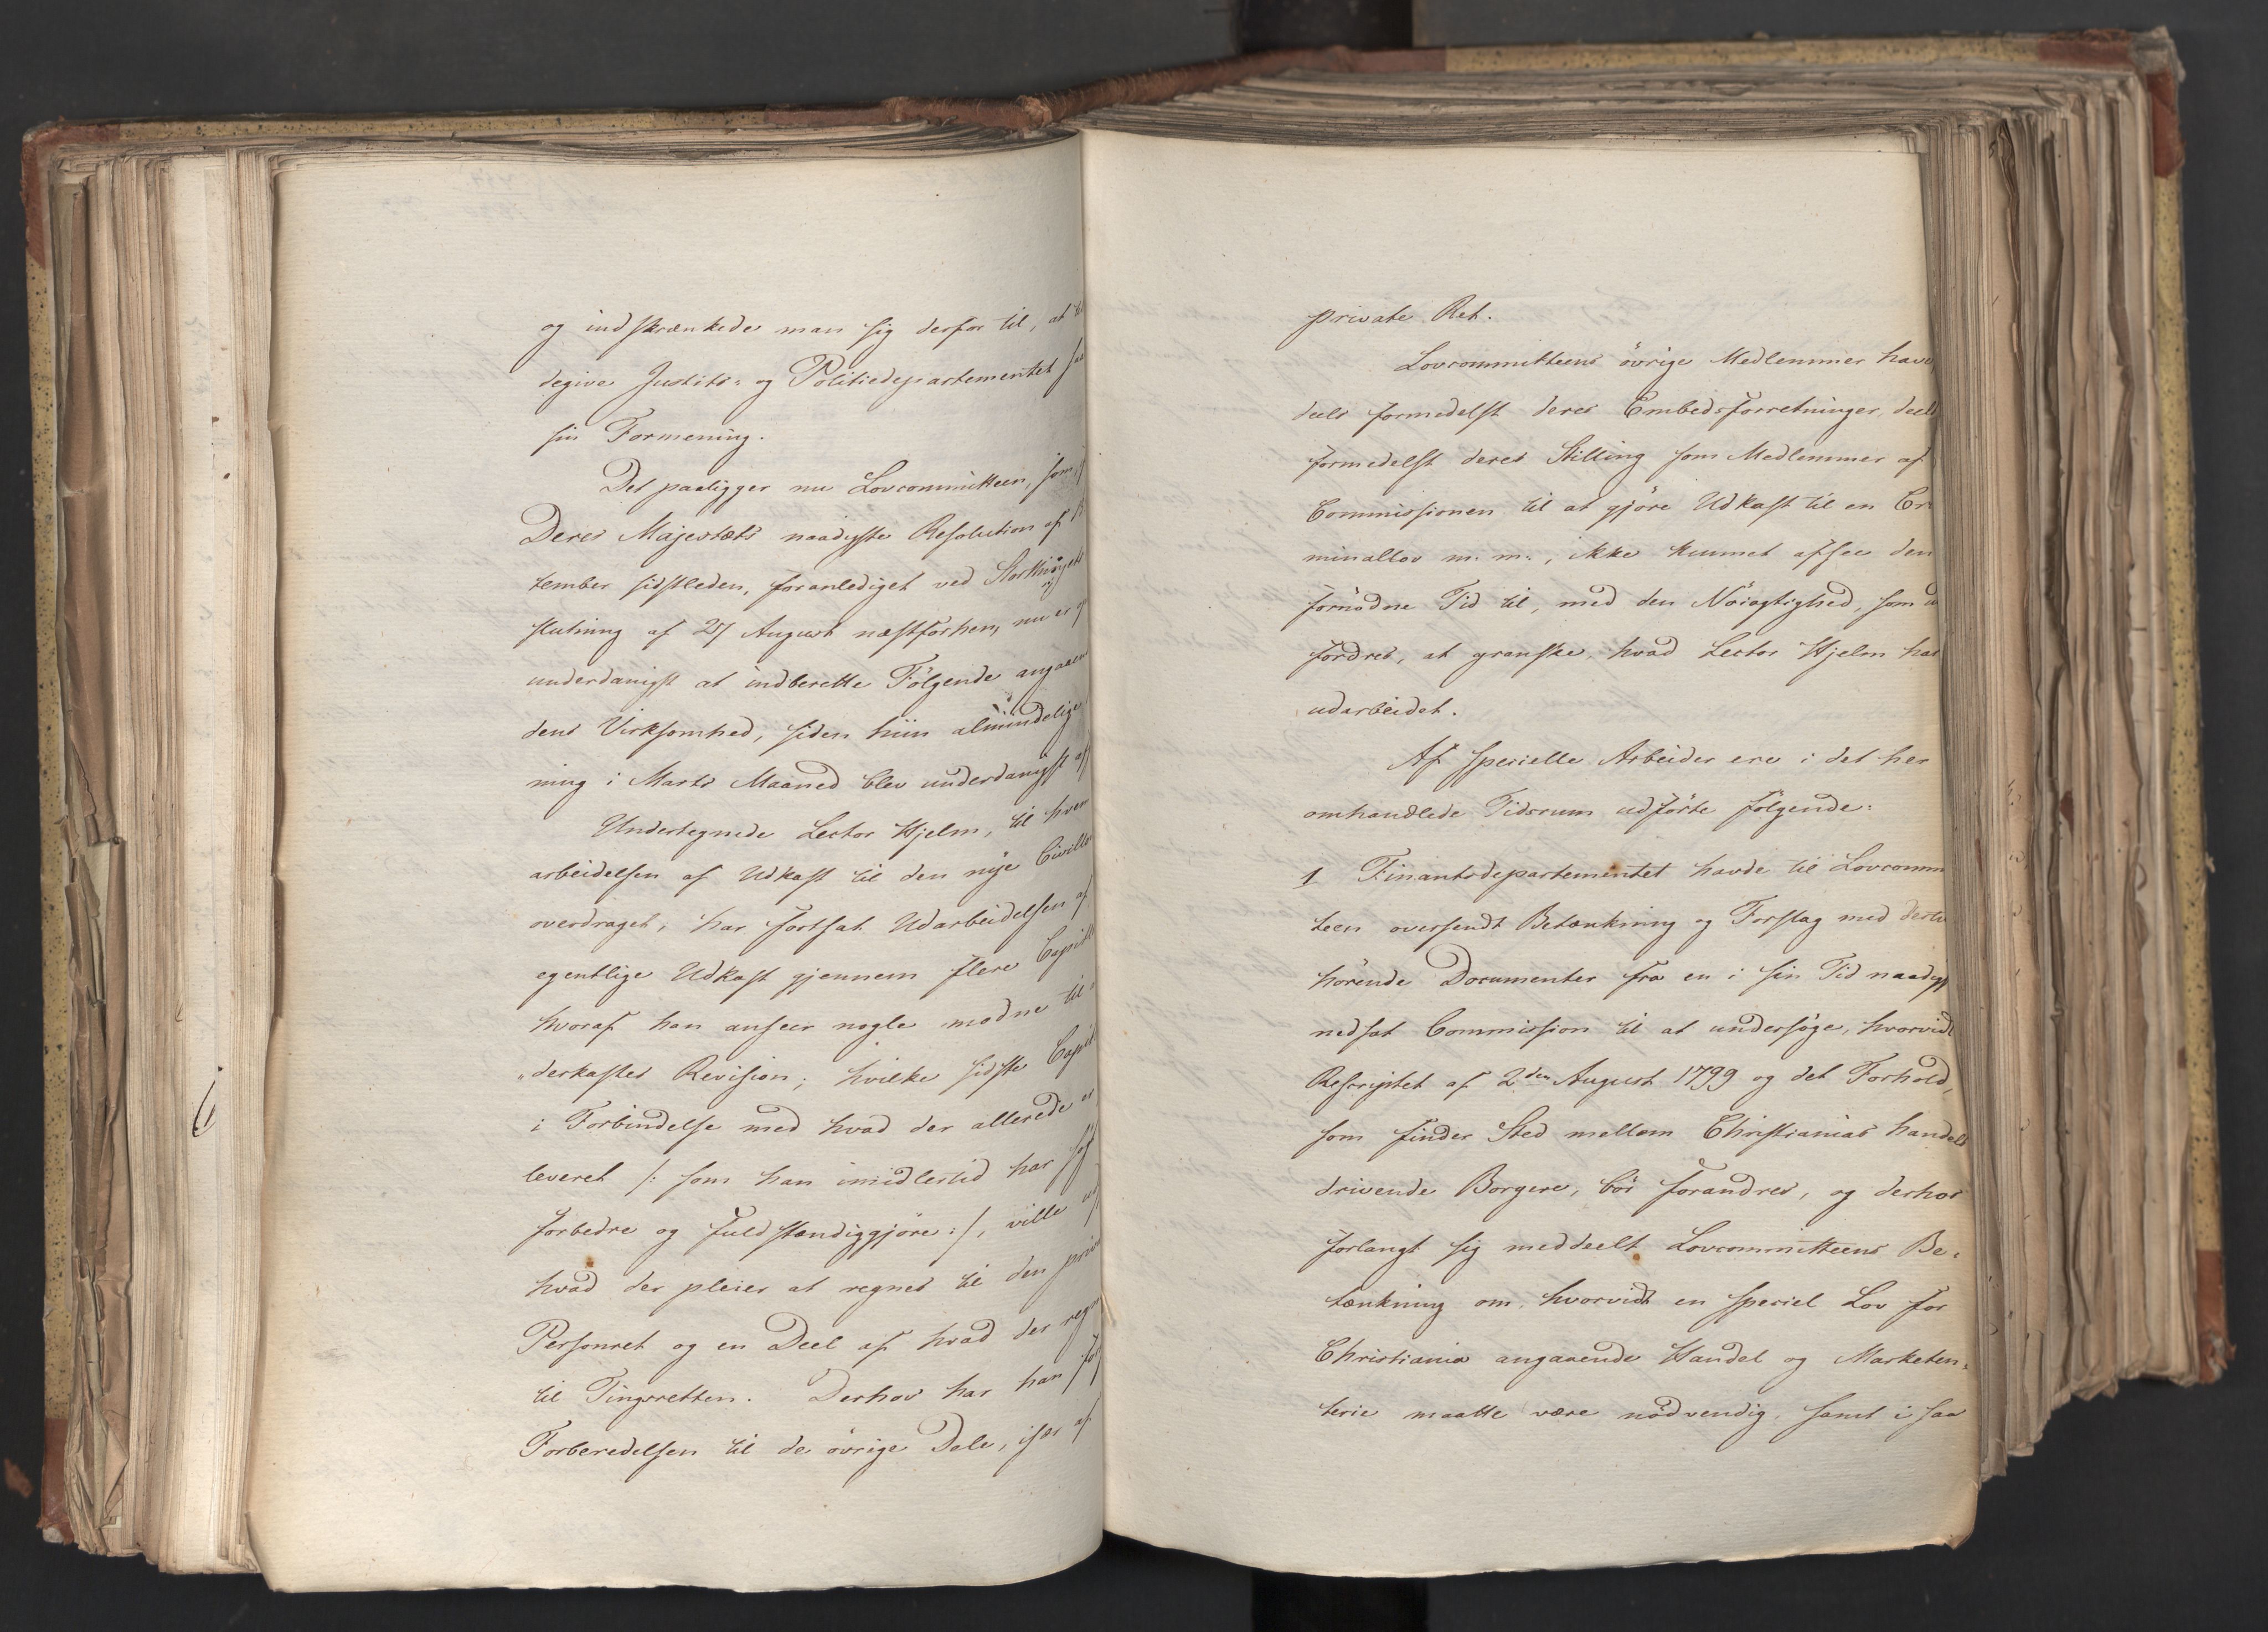 og indskrænkede man sig derfor til, at til
degive Justits- og Politiedepartementet saa
sin Formening.
Det paaligger nu Lovcommitteen, som,
Deres Majestæts naadigste Resolution af
tember sidstleden, foranlediget ved Storthingets
slutning af 27 August næstforhen, nu er
underdanigst at indberette Følgende angaaen
dens Virksomhed, siden hiin almindelige
ning i Marts Maaned blev underdanigst af
Undertegnede Lector Hjelm, til hvem
arbeidelsen af Udkast til den nye Civillov
overdraget, har fortsat Udarbeidelsen af
egentlige Udkast gjennem flere Capitl
hvoraf han anseer nogle modne til
derkastes Revision; hvilke sidste Capit
i Forbindelse med hvad der allerede er
leveret /: som han imidlertid har søgt
forbedre og fuldstændiggjøre :/, ville
hvad der pleier at regnes til den priv
Personret og en Deel af hvad der regn
til Tingsretten. Derhos har han for
Forberedelsen til de øvrige Dele, især af
private Ret.
Lovcommitteens øvrige Medlemmer have
deels formedelst deres Embedsforretninger, deels
formedelst deres Stilling som Medlemmer af
Commissionen til at gjøre Udkast til en Cri
minallov m: m:, ikke kunnet afsee den
fornødne Tid til, med den Nøiagtighed, som
fordres, at granske, hvad Lector Hjelm har
udarbeidet.
Af specielle Arbeider ere i det her
omhandlede Tidsrum udførte følgende:
1 Finantsdepartementet havde til Lovcomm
teen oversendt Betænkning og Forslag med dertil
hørende Documenter fra en i sin Tid naadigst
nedsat Commission til at undersøge, hvorvidt
Rescriptet af 2den August 1799 og det Forhold,
som finder Sted mellem Christianias handels
drivende Borgere, bør forandres, og derhos
forlangt sig meddeelt Lovcommitteens Be-
tænkning om, hvorvidt en speciel Lov for
Christiania angaaende Handel og Marketen-
terie maatte være nødvendig, samt i saa